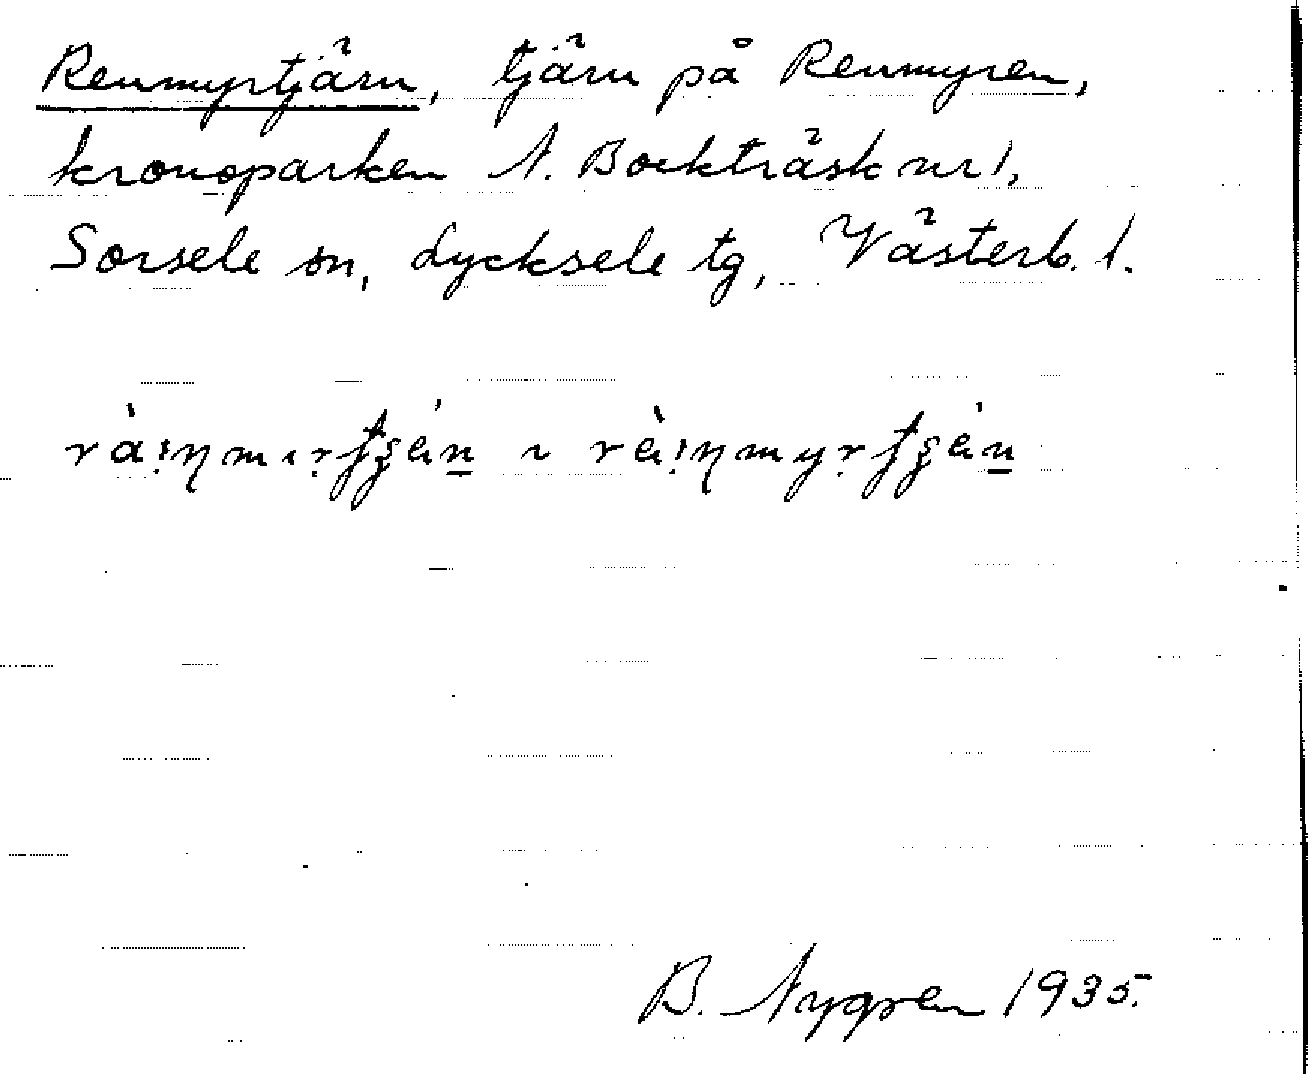 Renmyrtjärn, tjärn på Renmyren,
kronoparken N. Bockträsk nr 1,
Sorsele sn, Lycksele tg, Västerb. l.
B. Nygren 1935.